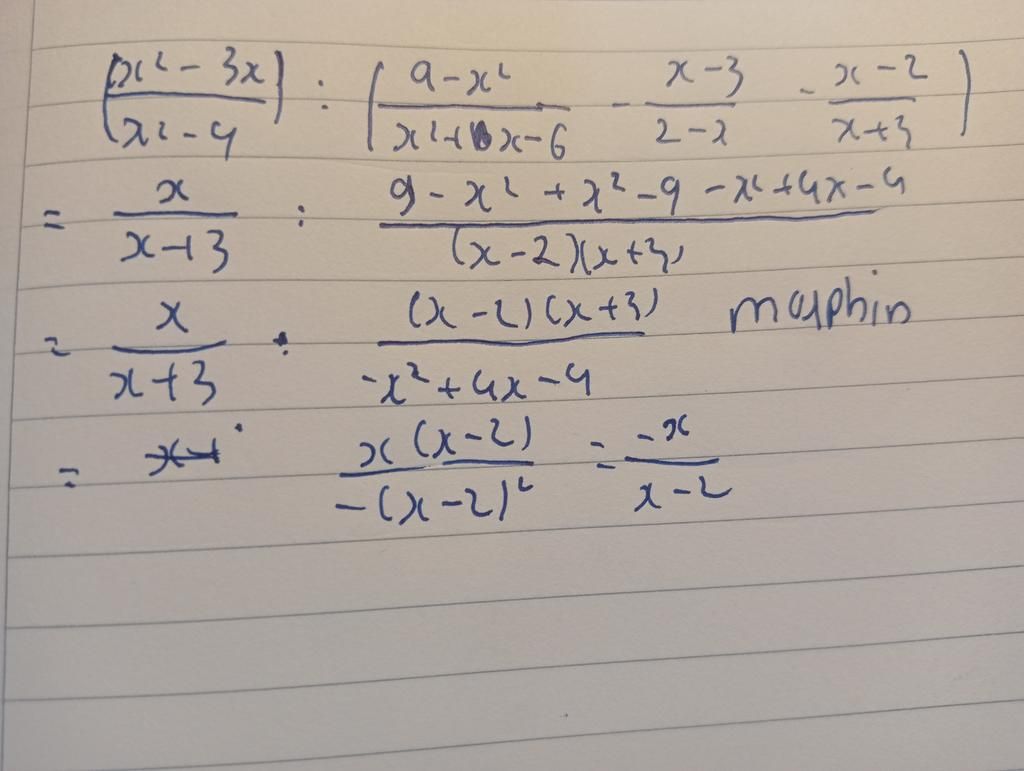 (x² - 3x / x² - 9) : (9 - x² / x² + x - 6 - x - 3 / 2 - x - x - 2 / x + 3)
= x / x + 3 : 9 - x² + x² - 9 - x² + 4x - 4 / (x - 2)(x + 3)
= x / x + 3 · (x - 2)(x + 3) / -x² + 4x - 4 morphin
= x (x - 2) / -(x - 2)² = -x / x - 2